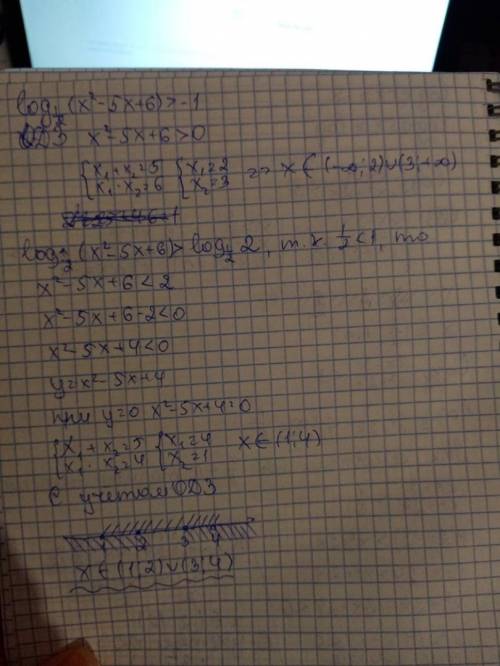 log½(x²-5x+6)>-1
ОДЗ x²-5x+6>0
{x₁+x₂=5 {x₁=2 => x∈(-∞;2)∪(3;+∞)
{x₁·x₂=6 {x₂=3
log½(x²-5x+6)>log½2, т.к ½<1, то
x²-5x+6<2
x²-5x+6-2<0
x²-5x+4<0
y=x²-5x+4
при y=0 x²-5x+4=0
{x₁+x₂=5 {x₁=4 x∈(1;4)
{x₁·x₂=4 {x₂=1
с учетом ОДЗ
1 2 3 4
x∈(1;2)∪(3;4)